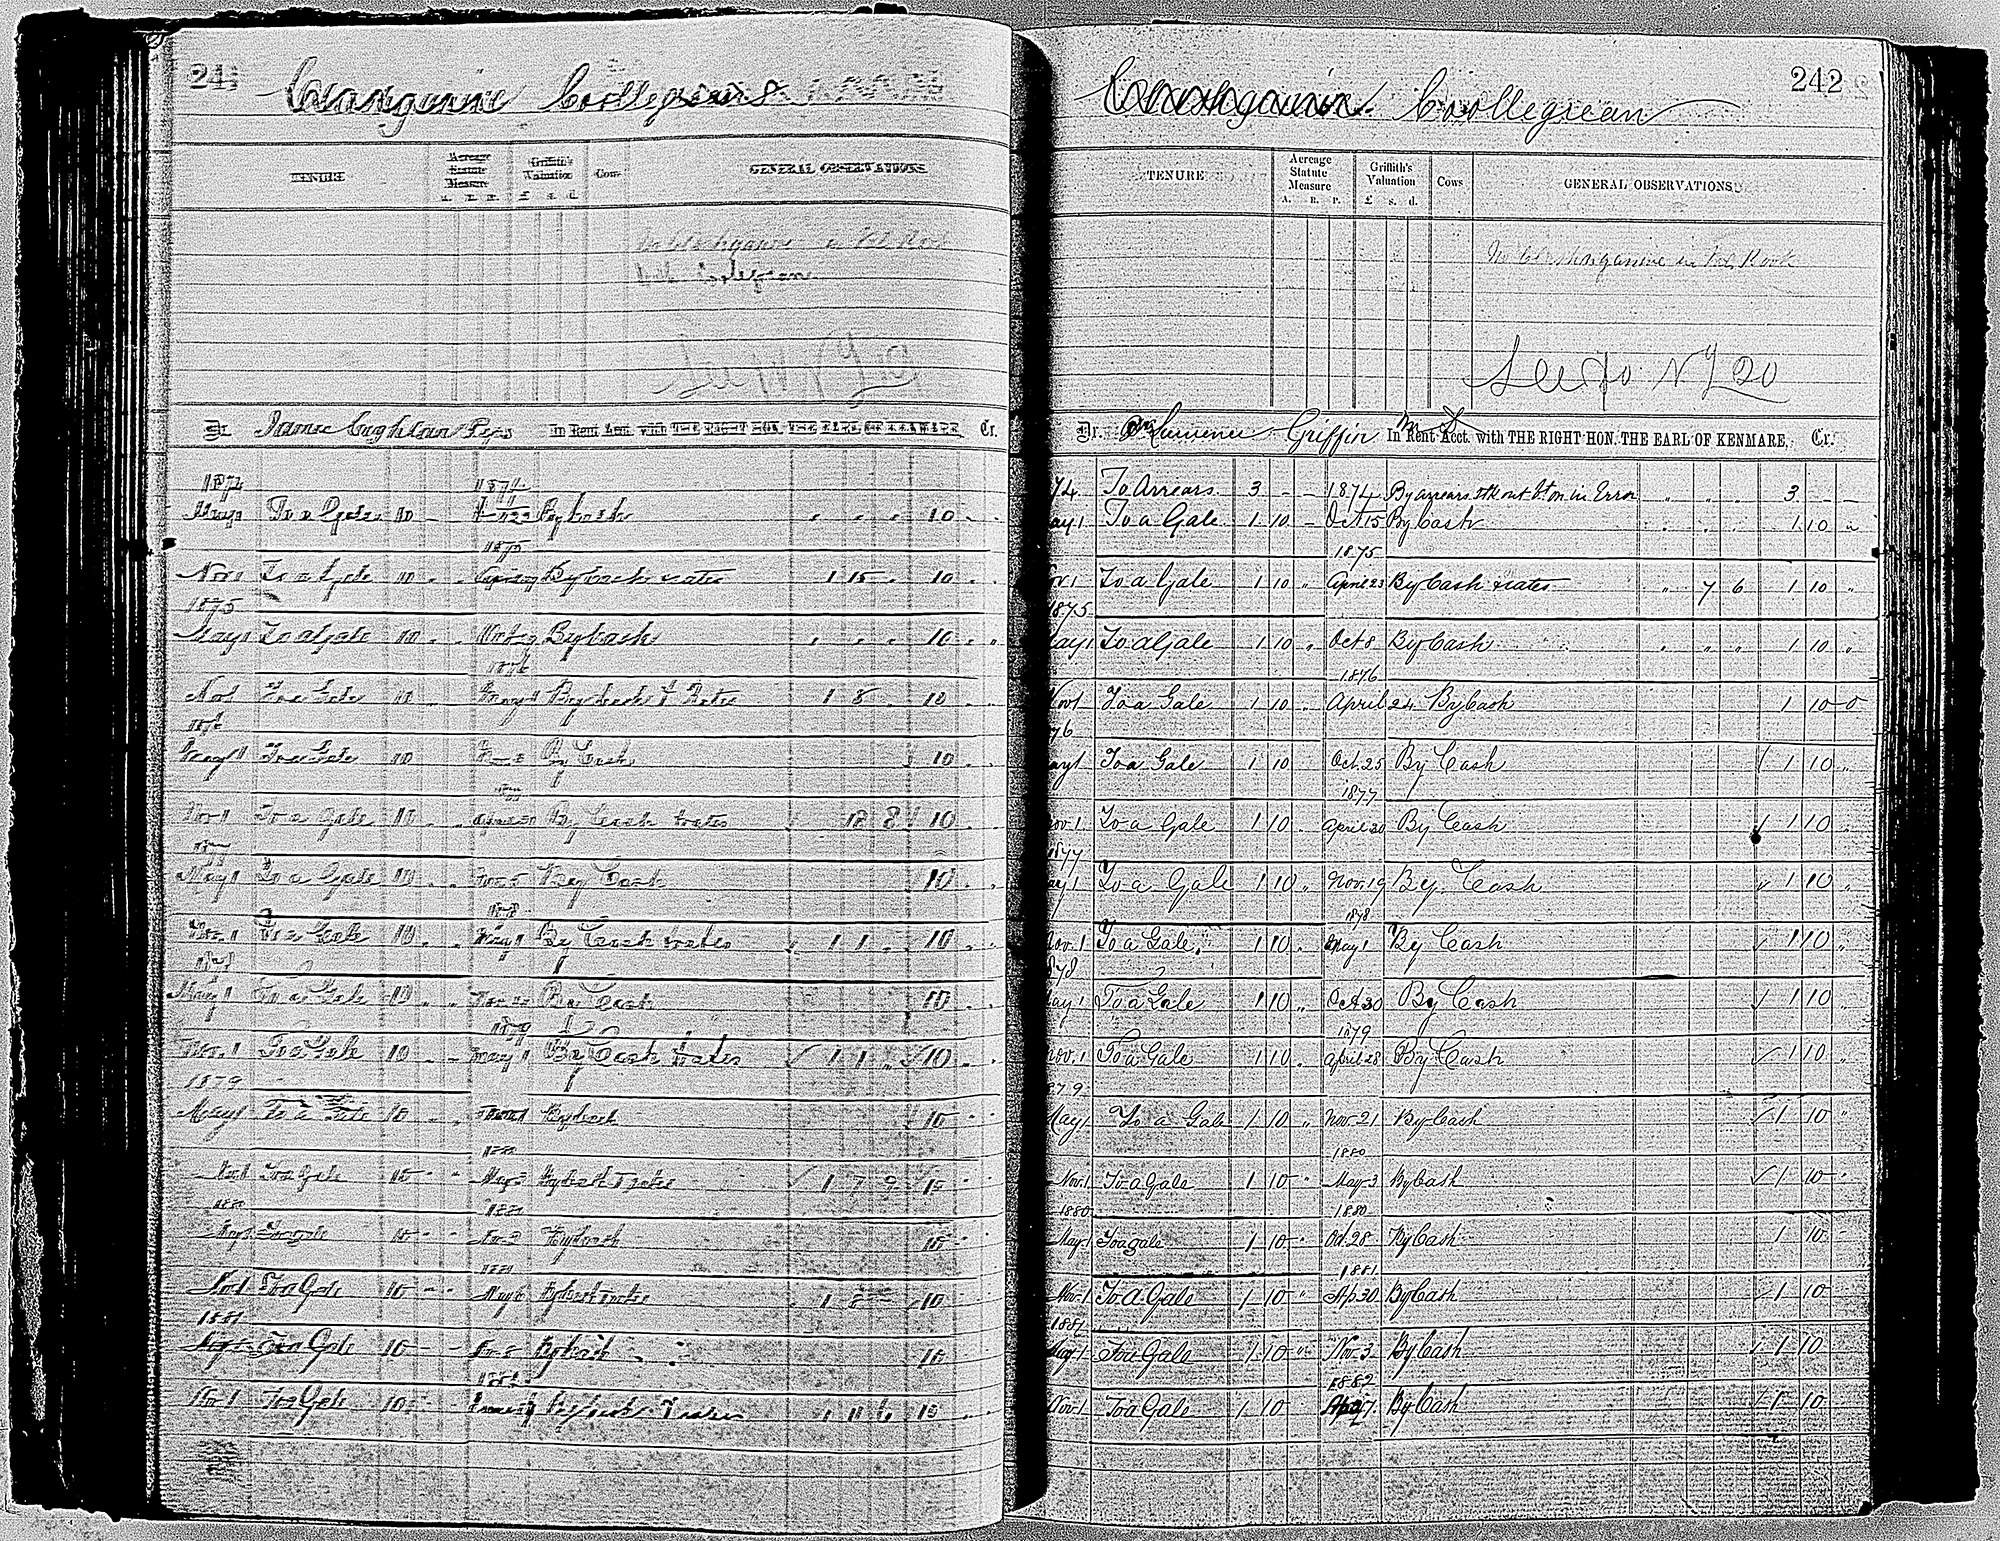 241
Coollegrean
TENURE
Acreage Statute Measure
A. R. P.
Griffith's Valuation
£ s. d.
Cows
GENERAL OBSERVATIONS.
Coolegrean
See
Dr. James Coghlan Reps In Rent Acct. with THE RIGHT HON. THE EARL OF KENMARE, Cr.
1874 1874
May 1 To a Gale 10 - By Cash " " " 10 " "
1875
Nov 1 To a Gale 10 " " By Cash & rates 1 15 " 10 " "
1875
May 1 To a Gale 10 " " By Cash " " " 10 " "
1876
Nov 1 To a Gale 10 " By Cash & Rates 1 8 " 10 " "
1876
May 1 To a Gale 10 By Cash 10
1877
Nov 1 To a Gale 10 " " April 30 By Cash & rates 18 8 10
1877
May 1 To a Gale 10 " " Nov. 5 By Cash 10 " "
1878
Nov. 1 To a Gale 10 " " May 1 By Cash & rates 1 1 " 10 " "
1878
May 1 To a Gale 10 " " By Cash 10
1879
Nov. 1 To a Gale 10 - - May 1 By Cash & rates 1 1 " 10 "
1879
May 1 To a Gale 10 " " By Cash 10 " "
1880
Nov 1 To a Gale 10 " " May 3 By Cash & rates 1 7 9 10 "
1880 1880
May 1 To a gale 10 " " By Cash 10 "
1881
Nov 1 To A Gale 10 " " May 6 By Cash & rates 1 8 10
1881
To a Gale 10 - - Nov. 8 By Cash 10
1882
Nov 1 To a Gale 10 By Cash & rates 1 11 6 10 " "
242
Coollegrean
TENURE
Acreage Statute Measure
A. R. P.
Griffith's Valuation
£ s. d.
Cows
GENERAL OBSERVATIONS.
See to 20
Dr. Laurence Griffin In Rent Acct. with THE RIGHT HON. THE EARL OF KENMARE, Cr.
74. To Arrears 3 - - 1874 By arrears in Error " " " 3 - -
ay 1 To a Gale 1 10 - Oct 15 By Cash " " " 1 10 "
1875
ov. 1 To a Gale 1 10 " April 23 By Cash & rates " 7 6 1 10 "
1875
ay 1 To a Gale 1 10 " Oct 8 By Cash " " " 1 10 "
1876
Nov 1 To a Gale 1 10 " April 24 By Cash 1 10 0
76
ay 1 To a Gale 1 10 Oct. 25 By Cash 1 10 "
1877
ov. 1 To a Gale 1 10 " April 30 By Cash 1 10 "
1877
ay 1 To a Gale 1 10 " Nov. 19 By Cash 1 10 "
1878
ov. 1 To a Gale. 1 10 " May 1 By Cash 1 10 "
878
ay 1 To a Gale 1 10 " Oct 30 By Cash 1 10 "
1879
nov. 1 To a Gale 1 10 " April 28 By Cash 1 10 "
879
May 1 To a Gale 1 10 " Nov. 21 By Cash 1 10 "
1880
Nov. 1 To a Gale 1 10 " May 3 By Cash 1 10 "
1880 1880
May. 1 To a gale 1 10 " Oct. 28 By Cash 1 10 -
1881
Nov. 1 To A Gale 1 10 " Ap 30 By Cash 1 10 "
1881
May 1 To a Gale 1 10 " Nov. 3 By Cash 1 10
1882
Nov. 1 To a Gale 1 10 By Cash 1 10